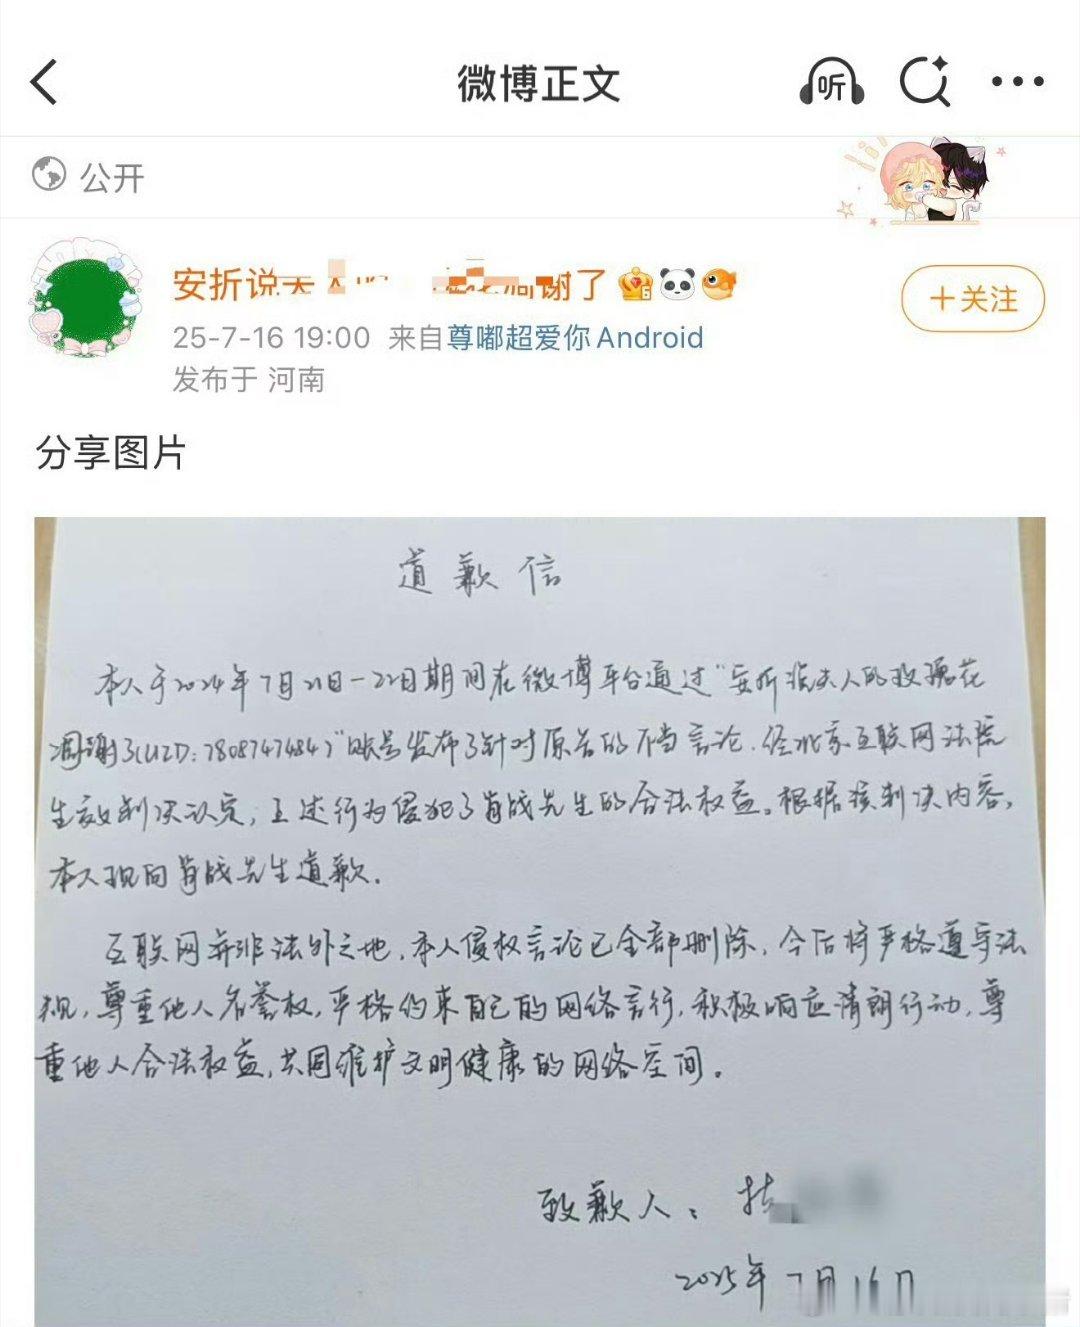 微博正文
听
公开
安折说夫人 凋谢了
25-7-16 19:00 来自尊嘟超爱你Android
发布于 河南
+关注
分享图片
道歉信
本人于2024年7月21日-22日期间在微博平台通过“安折说夫人的玫瑰花
凋谢了(UID:7808747484)”账号发布了针对原告的不当言论.经北京互联网法院
生效判决认定,上述行为侵犯了肖战先生的合法权益。根据该判决内容,
本人现向肖战先生道歉.
互联网并非法外之地,本人侵权言论已全部删除,今后将严格遵守法
规,尊重他人名誉权,严格约束自己的网络言行,积极响应清朗行动,尊
重他人合法权益,共同维护文明健康的网络空间。
致歉人:
2025年7月16日